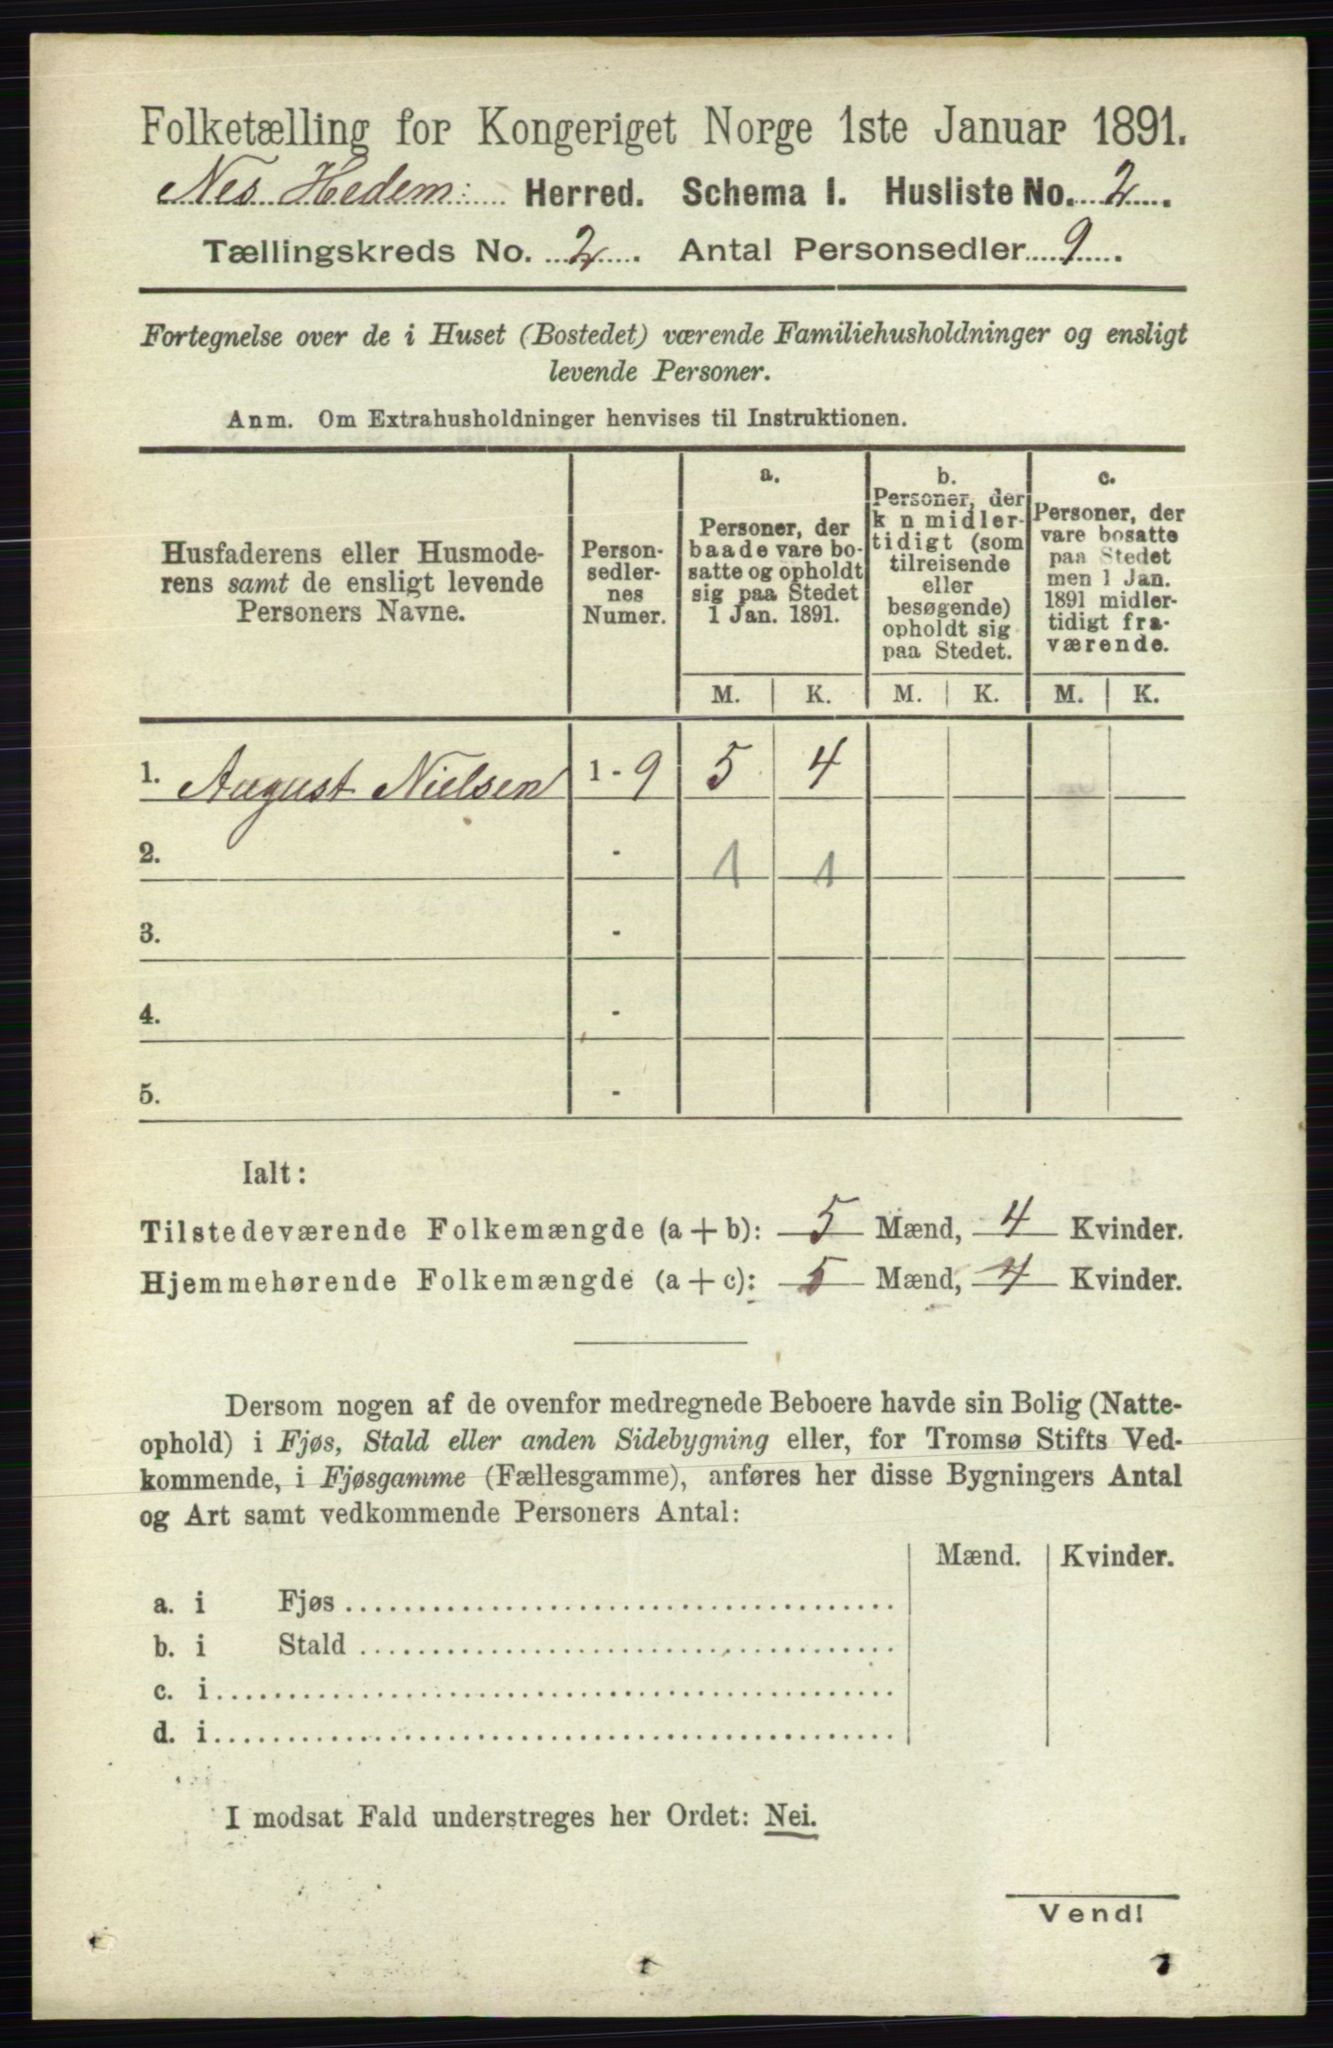 Folketælling for Kongeriget Norge 1ste Januar 1891.
Nes Hedem: Herred. Schema I. Husliste No. 2.
Tællingskreds No. 2. Antal Personsedler 9.
Fortegnelse over de i Huset (Bostedet) værende Familiehusholdninger og ensligt
levende Personer.
Anm. Om Extrahusholdninger henvises til Instruktionen.
Husfaderens eller Husmode-
rens samt de ensligt levende
Personers Navne.
Person-
sedler-
nes
Numer.
a.
Personer, der
baade vare bo-
satte og opholdt
sig paa Stedet
1 Jan. 1891.
b.
Personer, der
k n midler-
tidigt (som
tilreisende
eller
besøgende)
opholdt sig
paa Stedet.
c.
Personer, der
vare bosatte
paa Stedet
men 1 Jan.
1891 midler-
tidigt fra-
værende.
M. K. M. K. M. K.
1. August Nielsen 1 - 9 5 4
2. - 1 1
3. -
4. -
5. -
Ialt:
Tilstedeværende Folkemængde (a + b): 5 Mænd, 4 Kvinder.
Hjemmehørende Folkemængde (a + c): 5 Mænd, 4 Kvinder.
Dersom nogen af de ovenfor medregnede Beboere havde sin Bolig (Natte-
ophold) i Fjøs, Stald eller anden Sidebygning eller, for Tromsø Stifts Ved-
kommende, i Fjøsgamme (Fællesgamme), anføres her disse Bygningers Antal
og Art samt vedkommende Personers Antal:
Mænd. Kvinder.
a. i Fjøs
b. i Stald
c. i
d. i
I modsat Fald understreges her Ordet: Nei.
Vend!